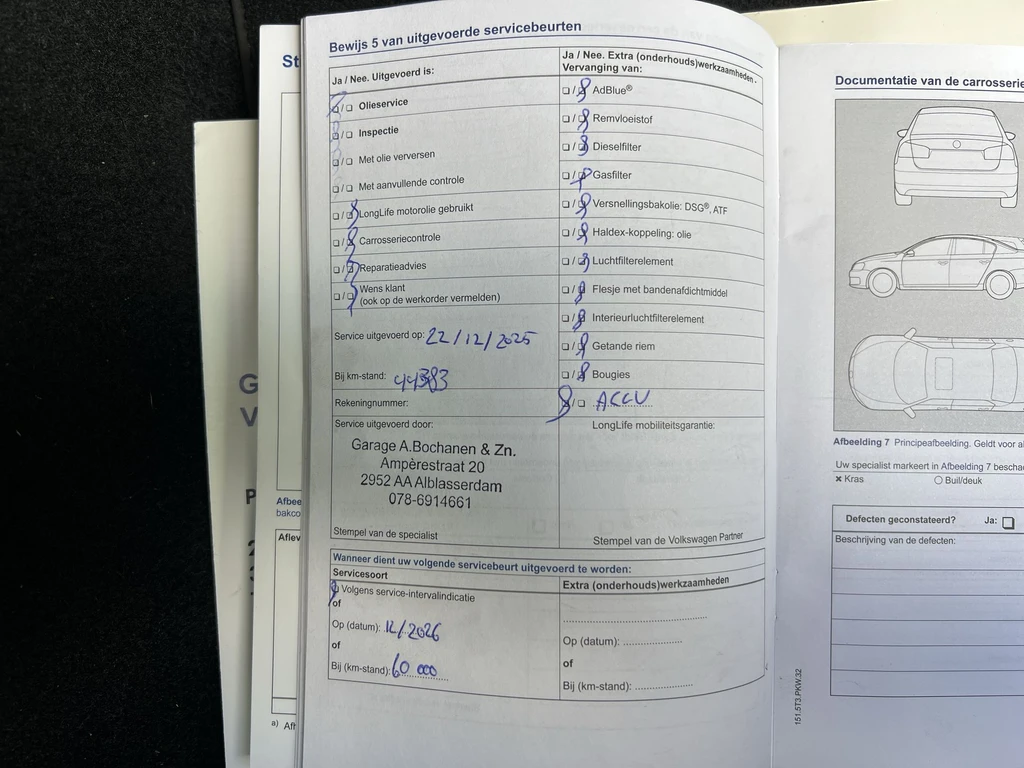 St
G
V
P
Afbee
bakco
Aflev
a) Aft
Bewijs 5 van uitgevoerde servicebeurten
Ja / Nee. Uitgevoerd is:
☐/☐ Olieservice
☐/☐ Inspectie
☐/☐ Met olie verversen
☐/☐ Met aanvullende controle
☐/☐ LongLife motorolie gebruikt
☐/☐ Carrosseriecontrole
☐/☐ Reparatieadvies
☐/☐ Wens klant
(ook op de werkorder vermelden)
Service uitgevoerd op: 22/12/2025
Bij km-stand: 44383
Rekeningnummer:
Service uitgevoerd door:
Garage A.Bochanen & Zn.
Ampèrestraat 20
2952 AA Alblasserdam
078-6914661
Stempel van de specialist
Ja / Nee. Extra (onderhouds)werkzaamheden.
Vervanging van:
☐/☐ AdBlue®
☐/☐ Remvloeistof
☐/☐ Dieselfilter
☐/☐ Gasfilter
☐/☐ Versnellingsbakolie: DSG®, ATF
☐/☐ Haldex-koppeling: olie
☐/☐ Luchtfilterelement
☐/☐ Flesje met bandenafdichtmiddel
☐/☐ Interieurluchtfilterelement
☐/☐ Getande riem
☐/☐ Bougies
☐/☐ ACCU
LongLife mobiliteitsgarantie:
Stempel van de Volkswagen Partner
Wanneer dient uw volgende servicebeurt uitgevoerd te worden:
Servicesoort
☐ Volgens service-intervalindicatie
of
Op (datum): 12/2026
of
Bij (km-stand): 60 000
Extra (onderhouds)werkzaamheden
Op (datum):
of
Bij (km-stand):
151.5T3.PKW.32
Documentatie van de carrosserie
Afbeelding 7 Principeafbeelding. Geldt voor al
Uw specialist markeert in Afbeelding 7 bescha
× Kras ○ Buil/deuk
Defecten geconstateerd? Ja: ☐
Beschrijving van de defecten: